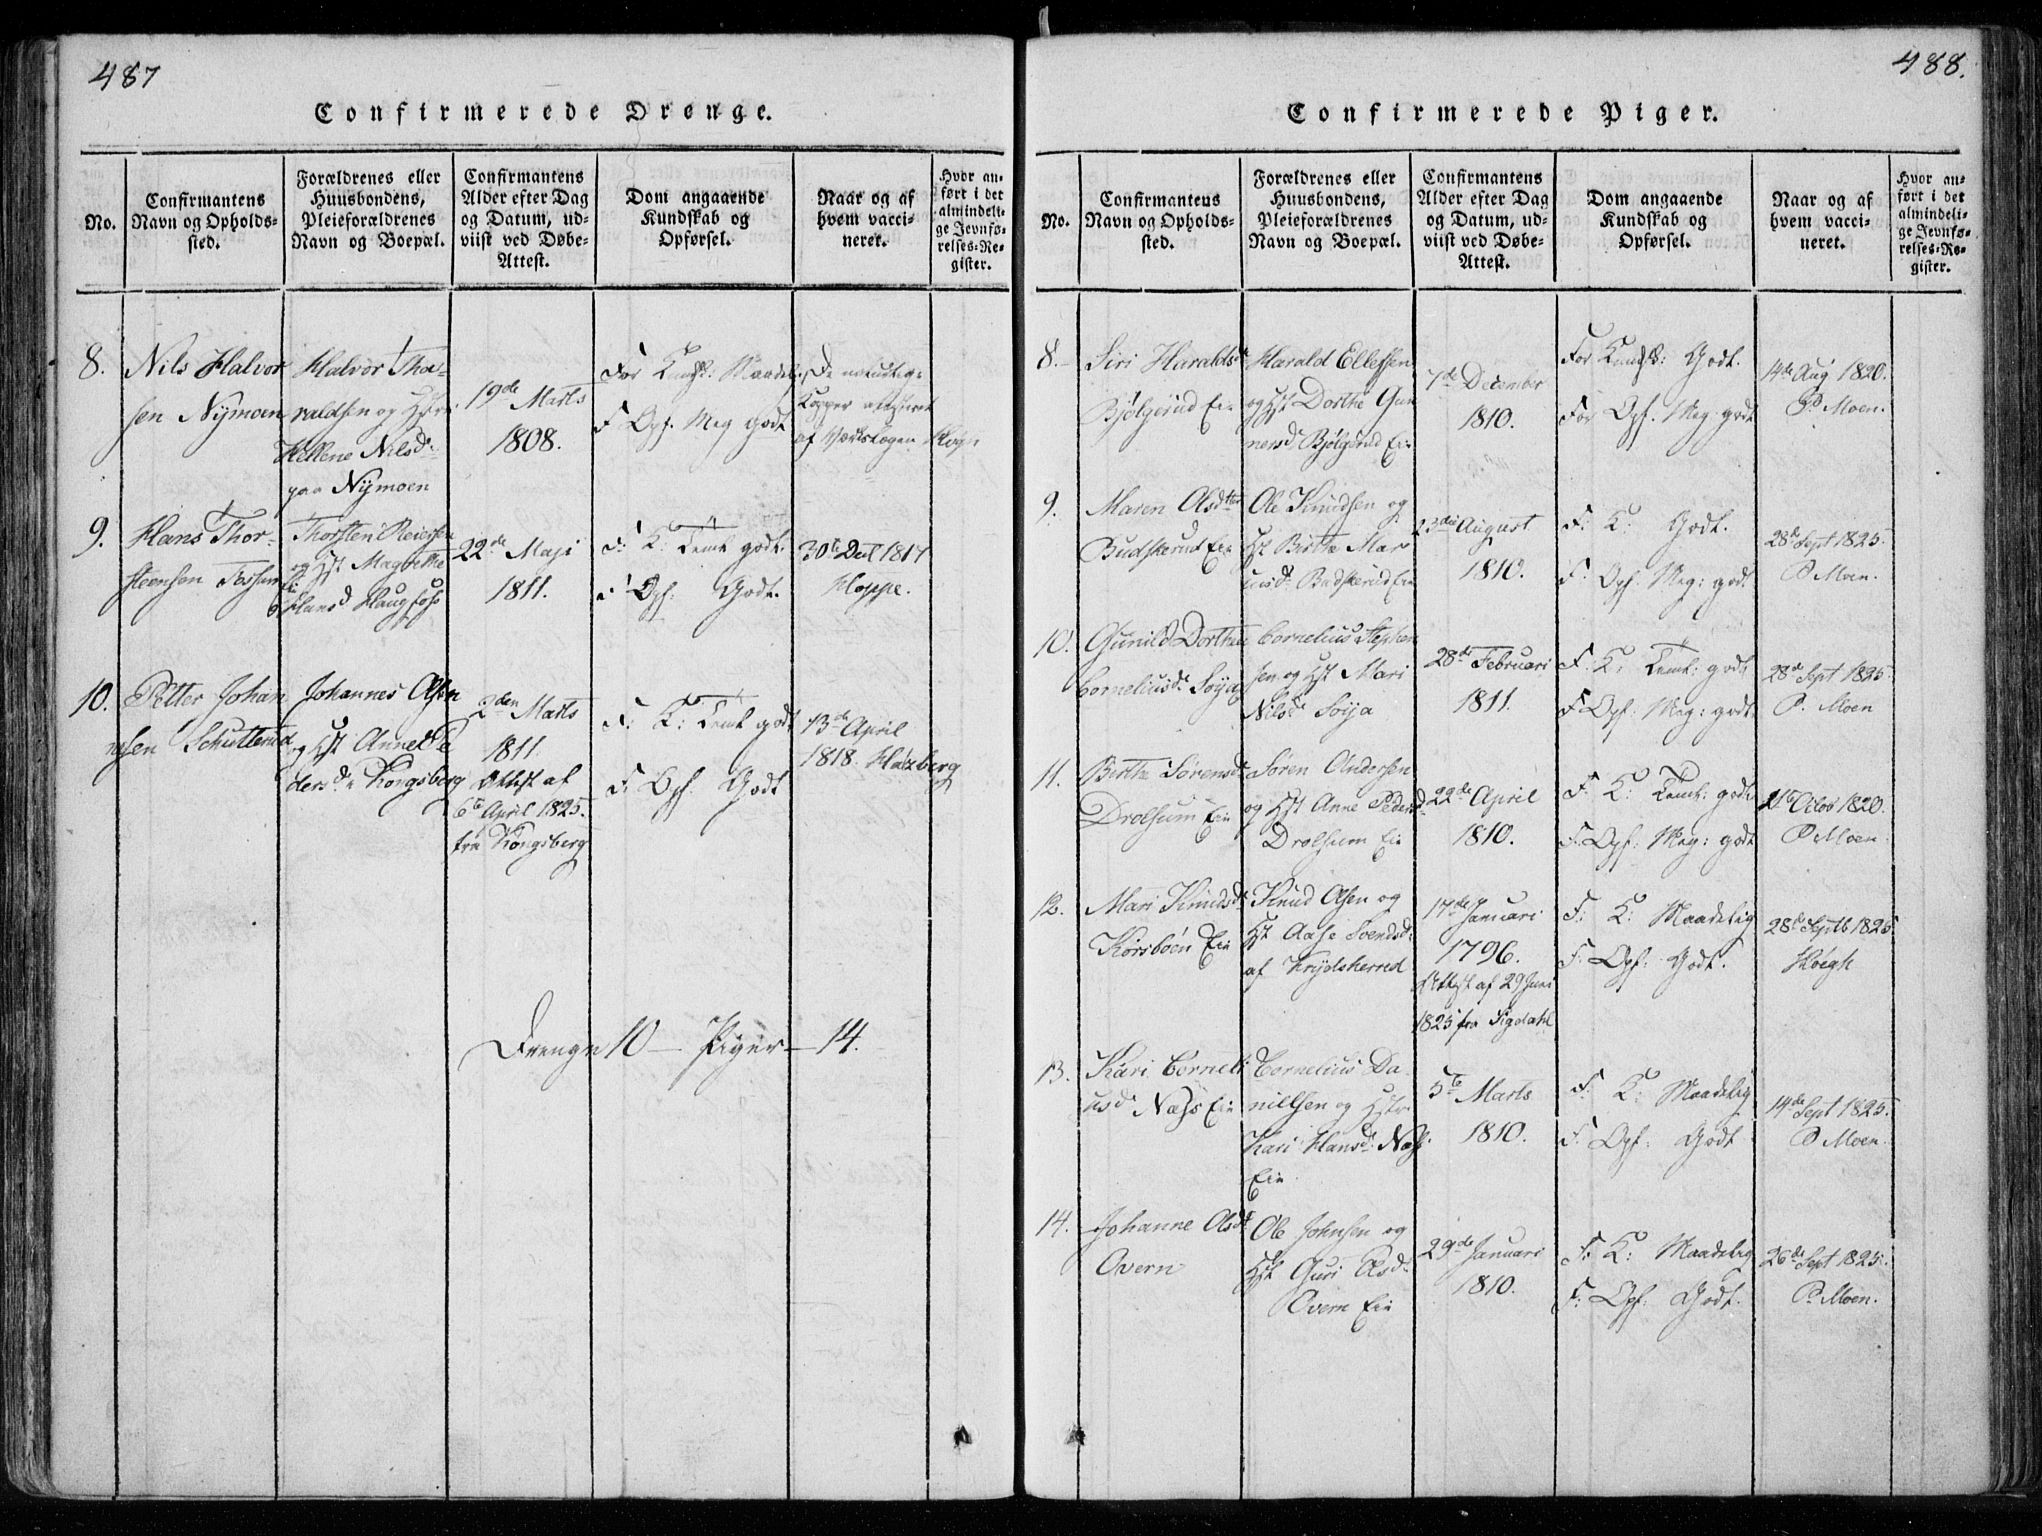 487
Confirmerede Drenge.
No.
Confirmantens
Navn og Opholds-
sted.
Forældrenes eller
Huusbondens,
Pleieforældrenes
Navn og Boepæl.
Confirmantens
Alder efter Dag
og Datum, ud-
viist ved Døbe-
Attest.
Dom angaaende
Kundskab og
Opførsel.
Naar og af
hvem vacci-
neret.
Hvor an-
ført i det
almindeli-
ge Jevnfø-
relses-Re-
gister.
8.
Nils Halvor
sen Nymoen
Halvor Tho-
valdsen og
Hellene Nilsd.
paa Nymoen
19de Marts
1808.
For Kundsk: Maadel.
F Opf. Meg godt
De naturlige
Kopper
af
9.
Hans Thor-
steensen
Thorsten Reiersen
og Hst Magrethe
Hansd Haugfoss
22de Maji
1811.
F: K: Teml godt
F: Opf: Godt.
30te Dec 1817
Hoppe.
10.
Petter Johan
nesen Schutterud
Johannes Olsen
og Hst Anne Pe
dersd. Kongsberg
2den Marts
1811
Attest af
6te April 1825.
fra Kongsberg
F: K: Teml godt
F: Opf Godt
13de April
1818. Harzberg
Drenge 10 — Piger — 14.
488.
Confirmerede Piger.
No.
Confirmantens
Navn og Opholds-
sted.
Forældrenes eller
Huusbondens,
Pleieforældrenes
Navn og Boepæl.
Confirmantens
Alder efter Dag
og Datum, ud-
viist ved Døbe-
Attest.
Dom angaaende
Kundskab og
Opførsel.
Naar og af
hvem vacci-
neret.
Hvor an-
ført i det
almindeli-
ge Jevnfø-
relses-Re-
gister.
8.
Siri Haraldsd
Bjølgerud Eie
Harald Ellefsen
og Hst Dorthe Gun
nersd Bjølgerud Eie
7de December
1810.
For Kundsk: Godt.
For Opf. Meg: godt
14de Aug 1820.
P. Moen.
9.
Maren Olsdtter
Budskerud Eie
Ole Knudsen og
Hst Birthe Mar
iusd. Budskerud Eie
23die August
1810.
F: K: Godt.
F: Opf: Meg: godt
28de Sept 1825.
P Moen.
10.
Gunild Dorthea
Corneliusd. Soija
Cornelius Stephen
sen og Hst Mari
Nilsd Soija
28de Februari
1811.
F. K: Teml: godt
F. Opf: Meg: godt.
28de Sept 1825
P. Moen
11.
Berthe Sørensd.
Drolsum Eie
Søren Andersen
og Hst Anne Pedersd.
Drolsum Eie
22de April
1810.
F. K: Teml: godt.
F. Opf: Meg: godt
21te Octob 1820.
P Moen.
12.
Mari Knudsd.
Korsboen Eie
Knud Olsen og
Hst Aase Svendsd.
af Krydsherred
17de Januari
1796.
Attest af 29 Juni
1825 fra Sigdahl
F: K: Maadelig
F: Opf: Godt.
28de Septb 1825
Høegh
13.
Kari Corneli
usd. Næss Eie
Cornelius Da
nillsen og Hstr.
Kari Hansd. Næss.
Eie
5te Marts
1810.
F: K: Maadelig
F: Opf: Godt
14de Sept 1825.
P Moen.
14.
Johanne Olsd.
Overn
Ole Johnsen og
Hst Guri Olsd.
Overn Eie
29de Januari
1810.
F: K: Maadelig
F: Opf: Godt.
26de Sept 1825.
P. Moen.